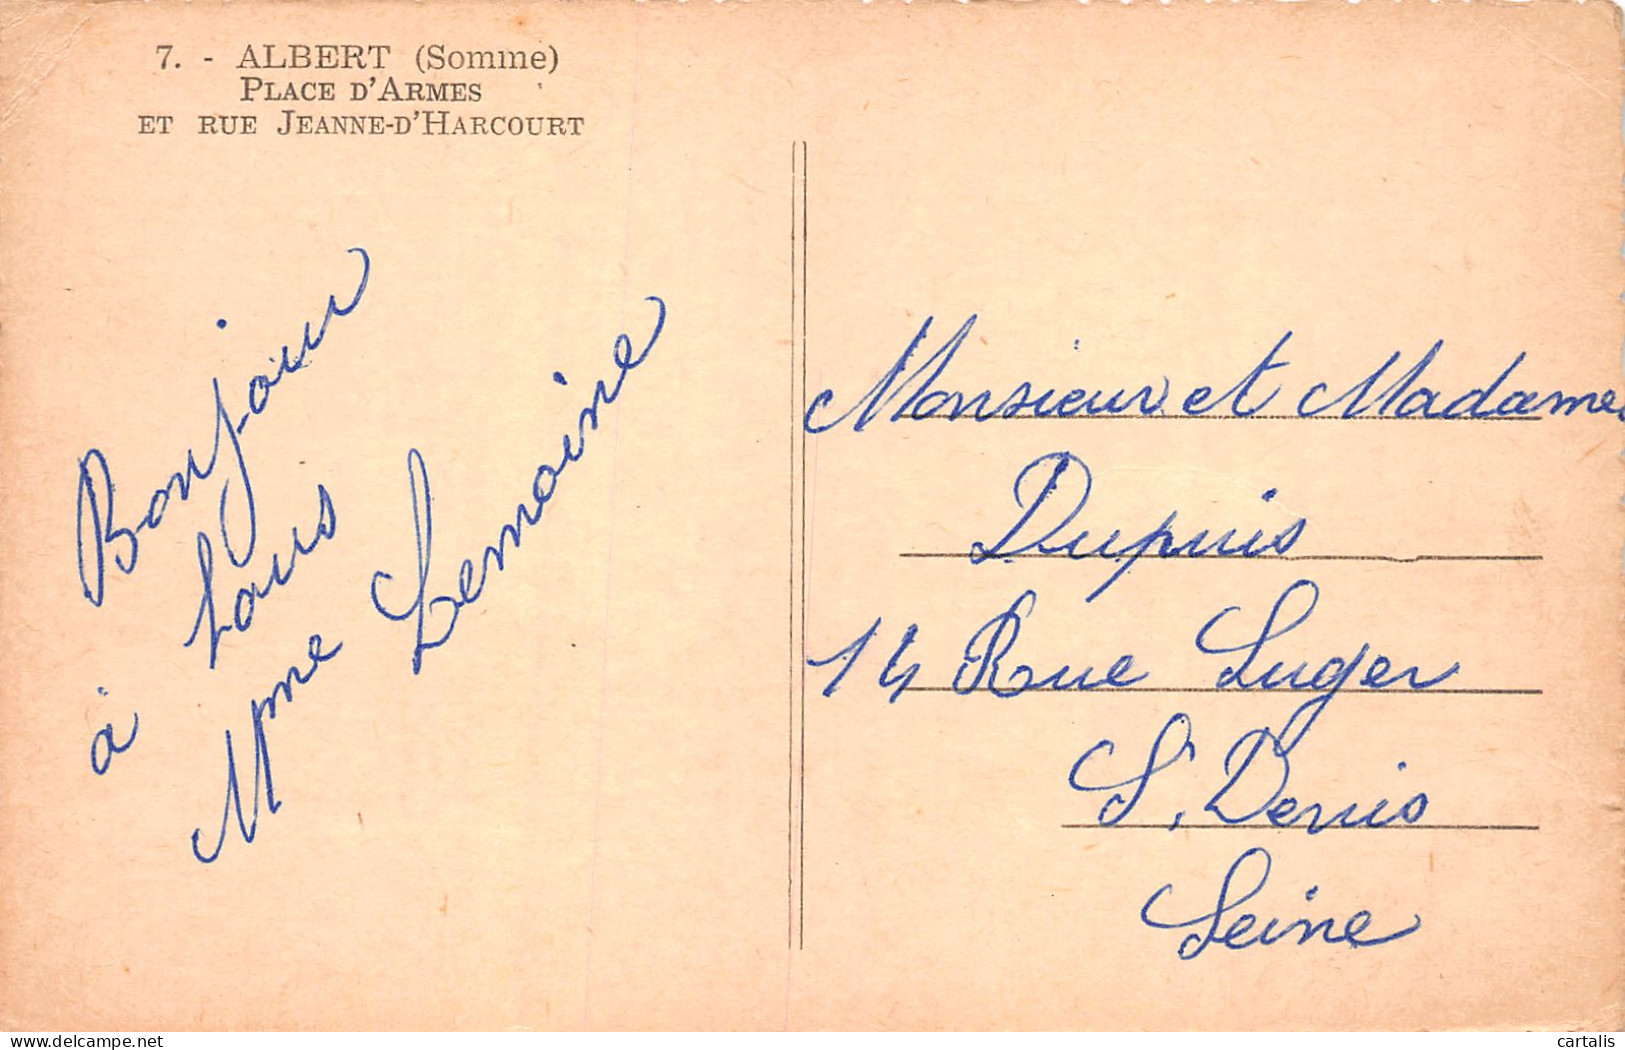 7. - ALBERT (Somme)
PLACE D'ARMES
ET RUE JEANNE-D'HARCOURT
Bonjour
à tous
Mme Lemoine
Monsieur et Madame
Dupuis
14 Rue Luger
S. Denis
Seine
delcampe.net
cartalis